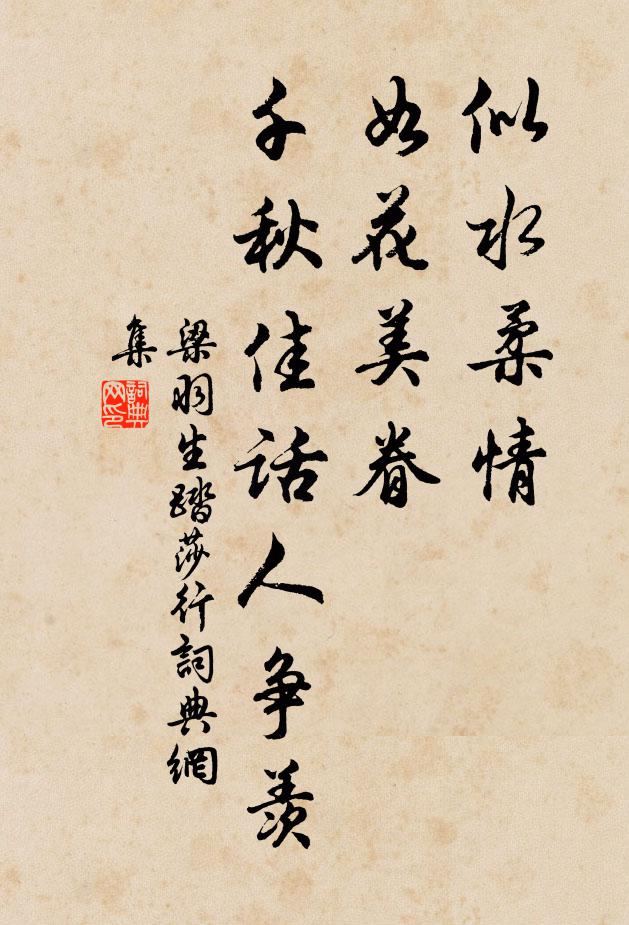 似水柔情
如花美眷
千秋佳話人争羨
梁羽生踏莎行詞典網
集
詞典
网印